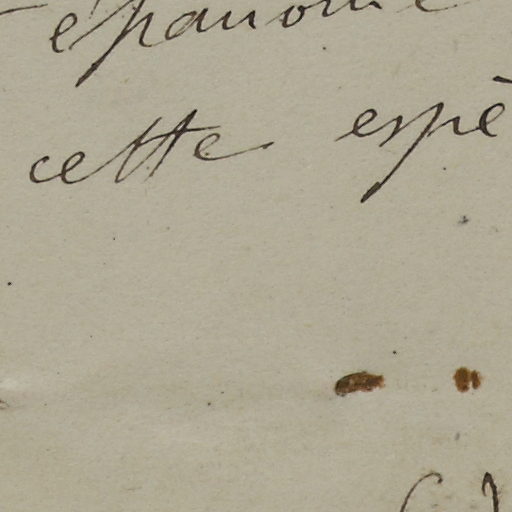 épanouie
cette espè